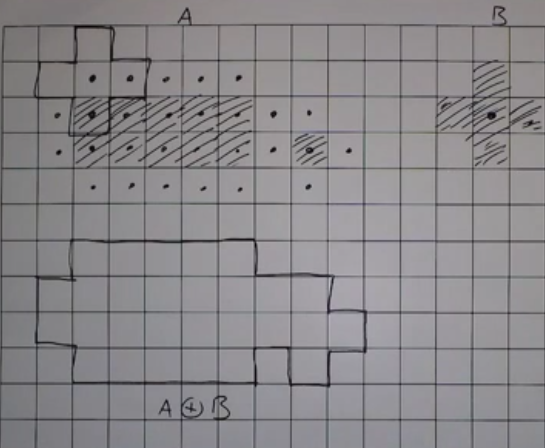 A B
A ⊕ B